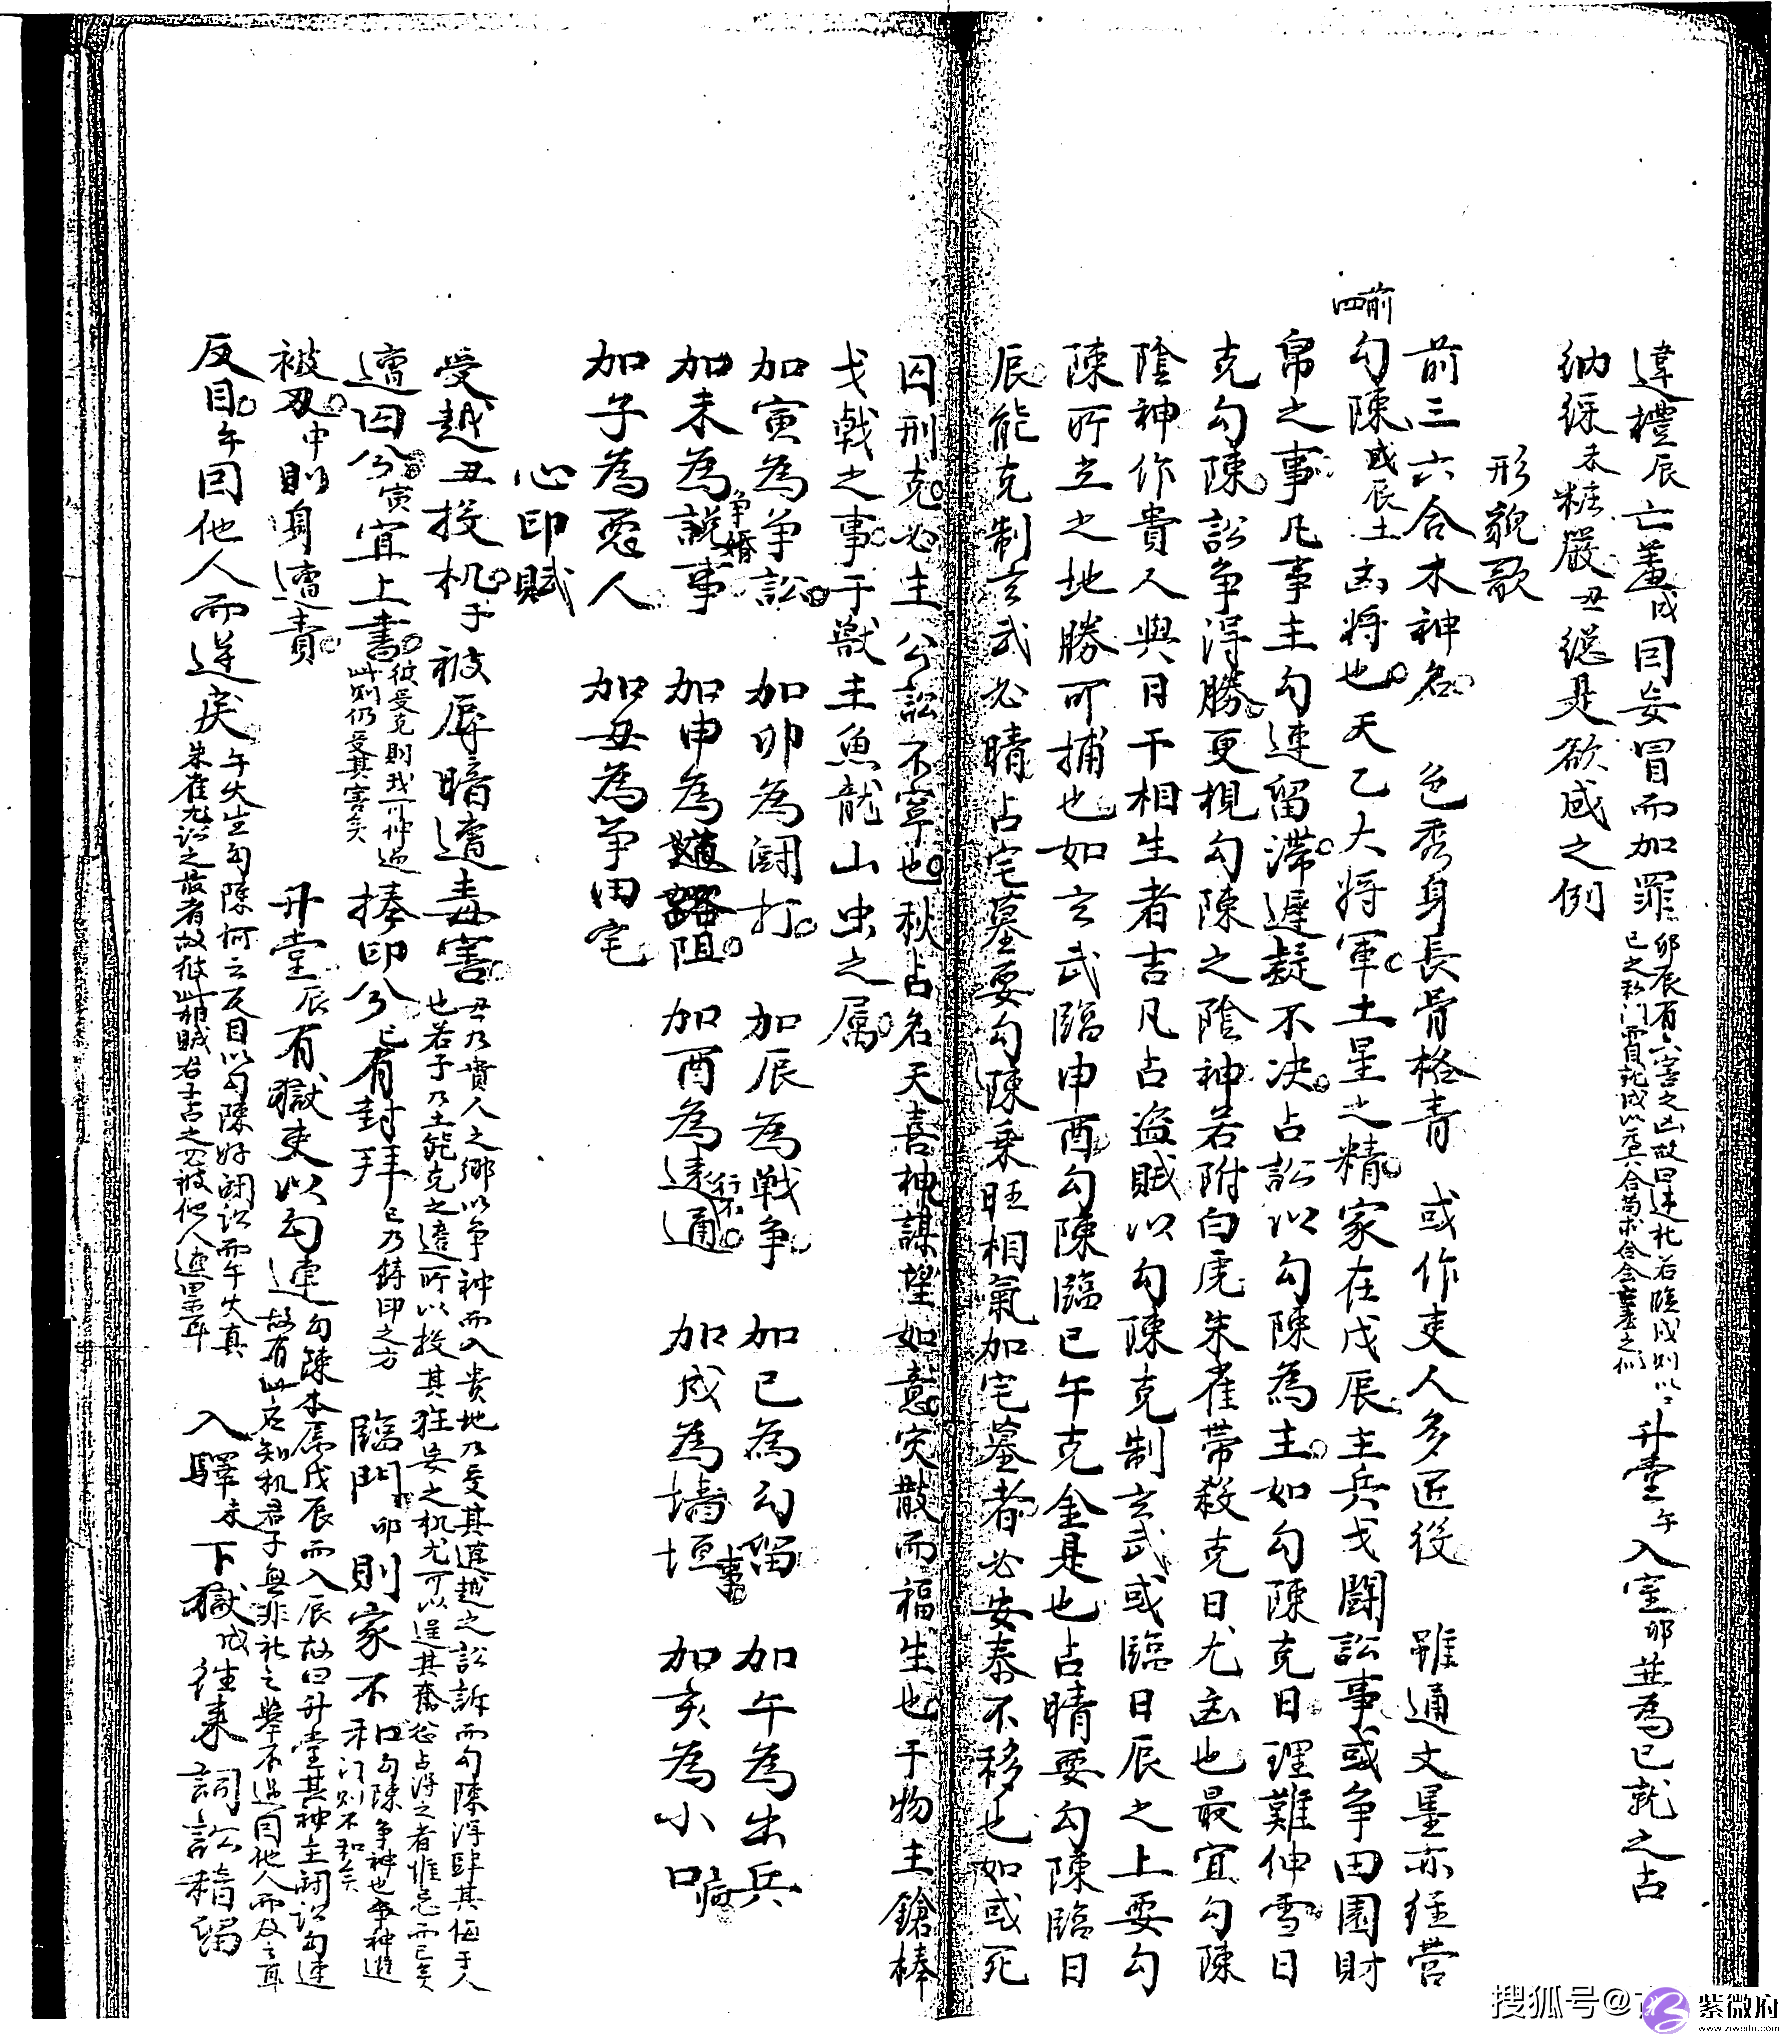 違禮辰亡羞戌因妄冒而加罪卯辰有六害之凶故曰違礼若臨戌則以
己之私门冒訛戌以為六合苟求合会羞之们升堂午入室卯並為已就之占
納綵未粧嚴丑總是欲成之例
形貌歌
前三六合木神名 色秀身長骨格青 或作吏人多匠役 雖通文墨亦经营
前四
勾陳戊辰土凶将也天乙大将軍土星之精家在戊辰主兵戈闘訟事或争田園財
帛之事凡事主勾連留滞遲疑不决占訟以勾陳為主如勾陳克日理難伸雪日
克勾陳訟争得勝更視勾陳之陰神若附白虎朱雀带殺克日尤凶也最宜勾陳
陰神作貴人與日干相生者吉凡占盗賊以勾陳克制玄武或臨日辰之上要勾
陳所立之地勝可捕也如玄武臨申酉勾陳臨巳午克金是也占晴要勾陳臨日
辰能克制玄武必晴占宅墓要勾陳乗旺相氣加宅墓者必安泰不移也如或死
囚刑克必主公訟不寧也秋占名天喜神謀望如意灾散而福生也于物主鎗棒
戈戟之事于獣主魚龍山虫之属
加寅為争訟 加卯為闘打 加辰為戦争 加巳為勾留事 加午為出兵
加未為説事争婚 加申為道路阻 加酉為遠行不通 加戌為墻垣 加亥為小口病
加子為惡人 加丑為争田宅
心印賦
受越丑投机子被辱暗遭毒害丑乃貴人之鄉以争神而入贵地乃受其違越之訟訴而勾陳浮肆其侮于人
也若子乃土能克之遠所以投其狂妄之机尤可以逞其奮忿占得之者惟忌而已矣
遭囚兮寅宜上書彼受克則我可伸冤
此则仍受其害矣捧印兮巳有封拜巳乃鋳印之方臨門卯則家不和勾陳争神也争神進
禾门则不和矣
被刃申則身遭責 升堂辰有獄吏以勾連勾陳本属戊辰而入辰故曰升堂其神主闘訟勾連
故有此占知机君子無非礼之舉不過因他人而及之耳
反目午因他人而逆戾午火生勾陳何云反目以勾陳好闘訟而午火真
朱雀尤訟之最者故彼此相賊若占之必被他人連累耳 入驛未下獄戌往来詞訟稽留
搜狐号@
紫微府
www.ziweifu.com